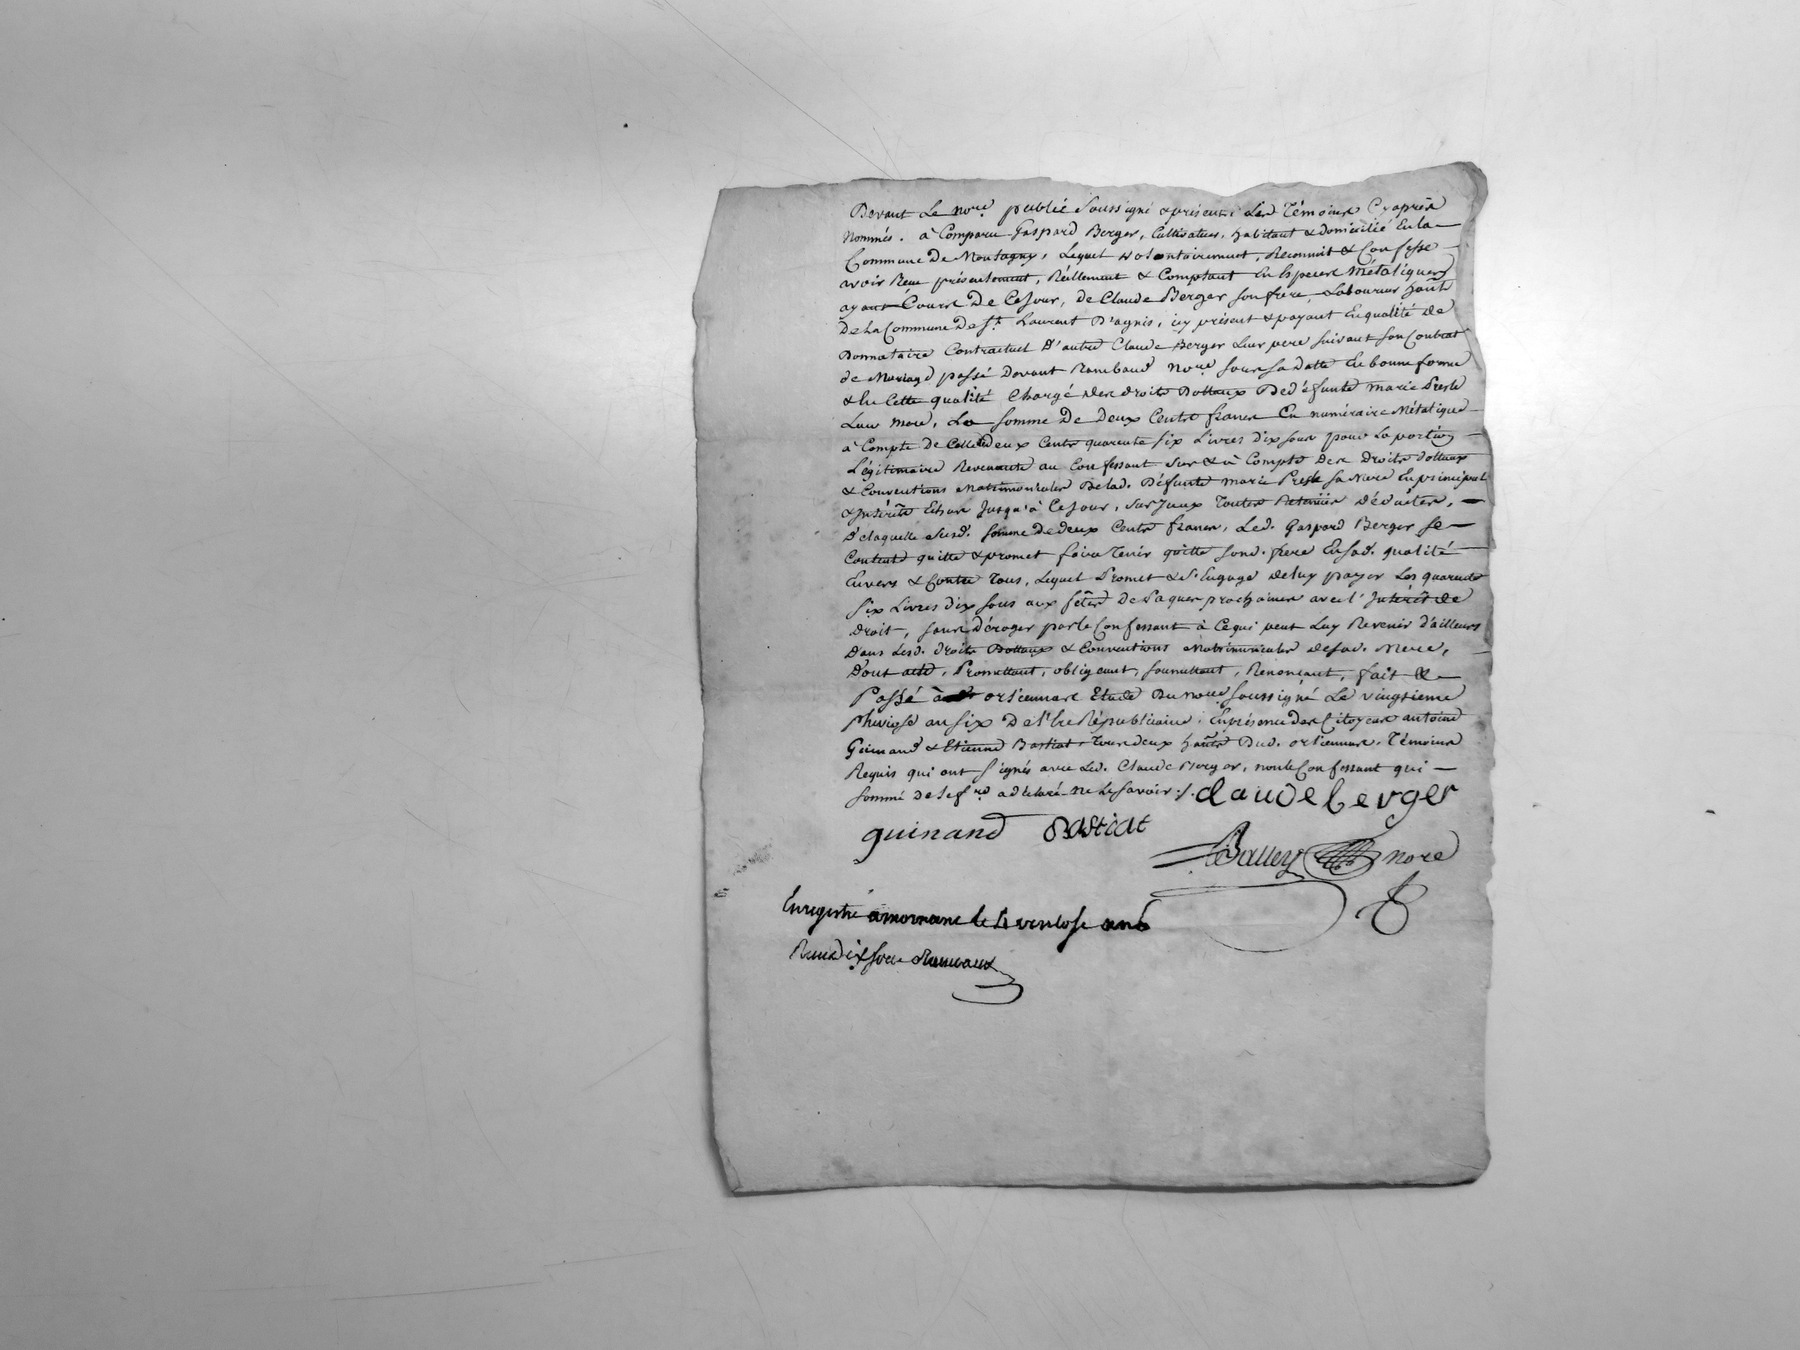 Devant Le nore. publié Soussigné & présents Les Témoins Cyaprès
Nommés. à Comparu Gaspard Berger, Cultivateur, habitant & domicilié En la
Commune de Montagny, Lequel volontairement, Reconnoit & Confesse
avoir Reçu présentement, Réellement & Comptant En Especes Métaliques
ayant Cours De Cejour, de Claude Berger son frère, Laboureur habt.
De la Commune De St. Laurent D'agnis, icy présent & payant En qualité de
Donnataire Contractuel D'autre Claude Berger Leur pere suivant son Contrat
de Mariage passé Devant Rambaud Nore. sous sa Datte En bonne forme
& En Cette qualité Chargé des droits Dottaux De défunte marie Presle
Leur Mere, La somme De Deux Cents francs En numéraire Métalique
à Compte de Celle de deux Cents quarente six Livres dix sous pour La portion
Légitimaire Revenante au Confessant sur & à Compte Des Droits dottaux
& Conventions Matrimoniales De lad. Défunte marie Presle sa Mere En principal
& Intérêts Echus Jusqu'à Cejour, sur Iceux Toutes Retenües Déduites,
De laquelle susd. somme de deux Cents francs, Led. Gaspard Berger se
Contente quitte & promet faire Tenir quitte sond. frere En sad. qualité
Envers & Contre Tous, Lequel Promet & S'Engage de luy payer Les quarente
six Livres dix sous aux fêtes De Paques prochaines avec l'Intérêt de
droit, sans Déroger par le Confessant à Ce qui peut Luy Revenir d'ailleurs
Dans Lesd. droits Dottaux & Conventions Matrimoniales de sad. Mere,
Dont acte, Promettant, obligeant, soumettant, Renonçant, fait &
Passé à orliennare Etude Du nore. soussigné Le vingtieme
Pluviose an six De l'Ere Républicaine, En présence Des Citoyens antoine
Guinand & Etienne Bastiat Tous deux habts. Dud. orliennare. Témoins
Requis qui ont signés avec Led. Claude Berger, non le Confessant qui
sommé De Ce f. a déclaré ne Le savoir ./. claude berger
guinand Bastiat
Balley nore
Enregistré a mornane le 4 ventose an 6
Reçu dix sous